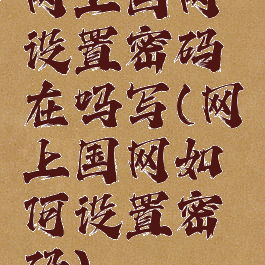 网上国网
设置密码
在吗写(网
上国网如
何设置密
码)